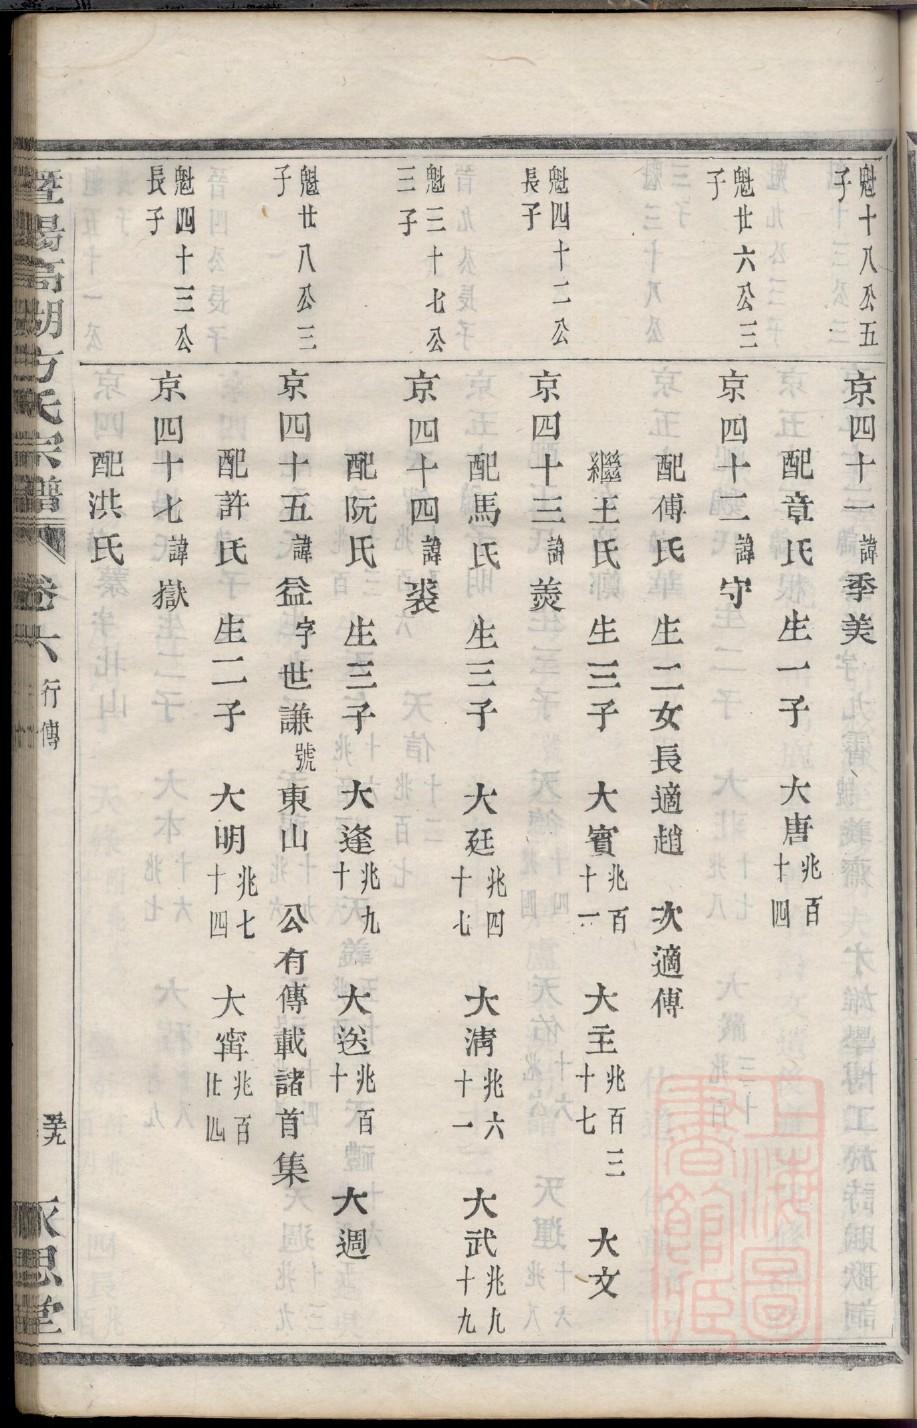 魁十八公五子
京四十一諱季美
配章氏 生一子 大唐兆百十四
魁廿六公三子
京四十二諱守
配傅氏 生二女長適趙 次適傅
繼王氏 生三子 大賓兆百十一 大主兆百三十七 大文
魁四十二公長子
京四十三諱羨
配馬氏 生三子 大廷兆四十七 大淸兆六十一 大武兆九十九
魁三十七公三子
京四十四諱裘
配阮氏 生三子 大逢兆九十 大送兆百十 大週
魁廿八公三子
京四十五諱益字世謙號東山 公有傳載諸首集
配許氏 生二子 大明兆七十四 大甯兆百廿四
魁四十三公長子
京四十七諱嶽
配洪氏
暨陽高湖方氏宗譜 卷六 行傳 永思堂